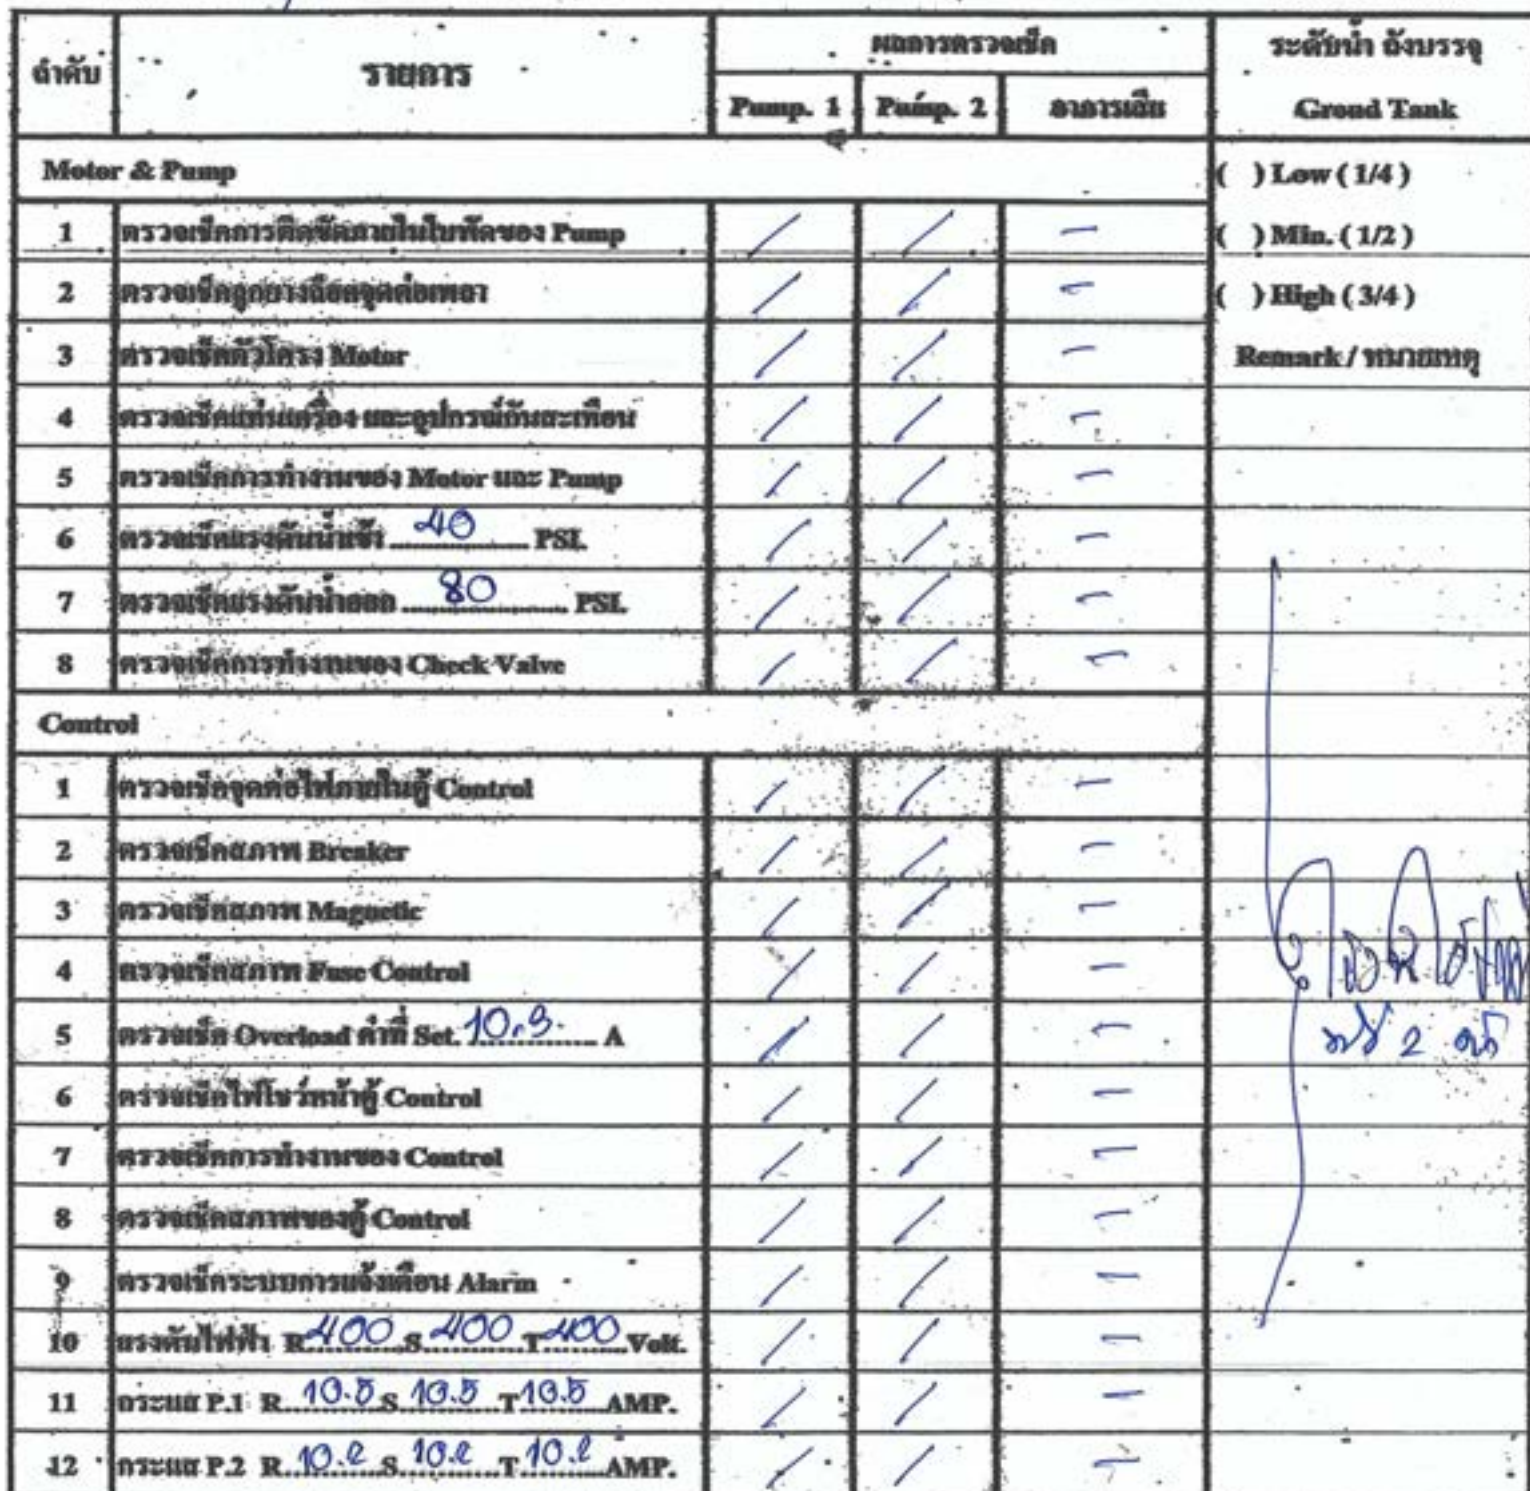 ลำดับ รายการ ผลการตรวจเช็ค ระดับน้ำ ถังบรรจุ
Pump. 1 Pump. 2 อาการเสีย Groud Tank
Motor & Pump ( ) Low ( 1/4 )
1 ตรวจเช็คการติดขัดภายในใบพัดของ Pump / / - ( ) Min. ( 1/2 )
2 ตรวจเช็คลูกยางฉีดจุดต่อเพลา / / - ( ) High ( 3/4 )
3 ตรวจเช็คตัวโครง Motor / / - Remark / หมายเหตุ
4 ตรวจเช็คแท่นเครื่อง และอุปกรณ์กันสะเทือน / / -
5 ตรวจเช็คการทำงานของ Motor และ Pump / / -
6 ตรวจเช็คแรงดันน้ำเข้า 40 PSI. / / -
7 ตรวจเช็คแรงดันน้ำออก 80 PSI. / / -
8 ตรวจเช็คการทำงานของ Check Valve / / -
Control
1 ตรวจเช็คจุดต่อไฟภายในตู้ Control / / -
2 ตรวจเช็คสภาพ Breaker / / -
3 ตรวจเช็คสภาพ Magnetic / / -
4 ตรวจเช็คสภาพ Fuse Control / / -
5 ตรวจเช็ค Overload ค่าที่ Set. 10.3. A / / - 2
6 ตรวจเช็คไฟโชว์หน้าตู้ Control / / -
7 ตรวจเช็คการทำงานของ Control / / -
8 ตรวจเช็คสภาพของตู้ Control / / -
9 ตรวจเช็คระบบการแจ้งเตือน Alarm / / -
10 แรงดันไฟฟ้า R 400 S 400 T 400 Volt. / / -
11 กระแส P.1 R 10.5 S 10.5 T 10.5 AMP. / / -
12 กระแส P.2 R 10.2 S 10.2 T 10.2 AMP. / / -